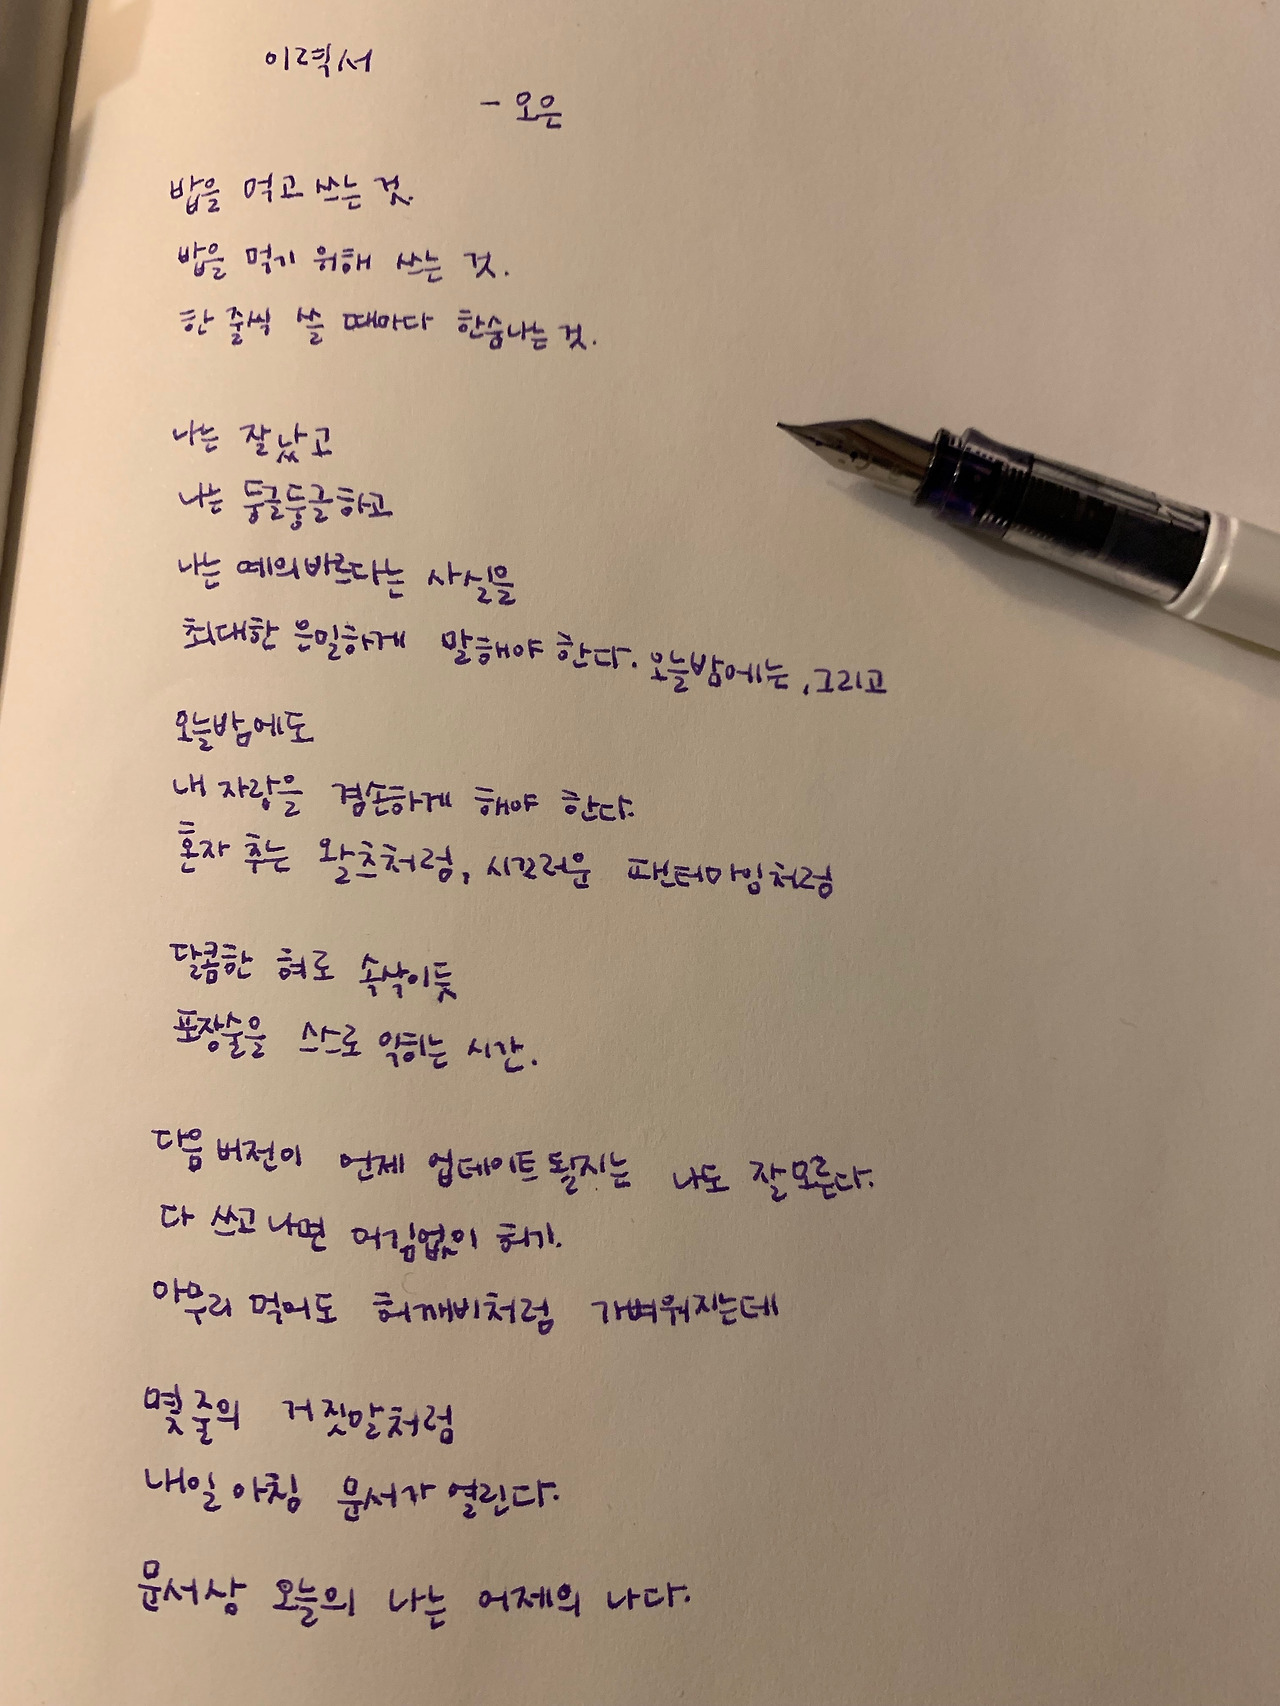 이력서
- 오은
밥을 먹고 쓰는 것.
밥을 먹기 위해 쓰는 것.
한 줄씩 쓸 때마다 한숨나는 것.
나는 잘났고
나는 둥글둥글하고
나는 예의바르다는 사실을
최대한 은밀하게 말해야 한다. 오늘밤에는, 그리고
오늘밤에도
내 자랑을 겸손하게 해야 한다.
혼자 추는 왈츠처럼, 시끄러운 팬터마임처럼
달콤한 혀로 속삭이듯
포장술을 스스로 익히는 시간.
다음 버전이 언제 업데이트 될지는 나도 잘 모른다.
다 쓰고 나면 어김없이 허기.
아무리 먹어도 허깨비처럼 가벼워지는데
몇 줄의 거짓말처럼
내일 아침 문서가 열린다.
문서상 오늘의 나는 어제의 나다.